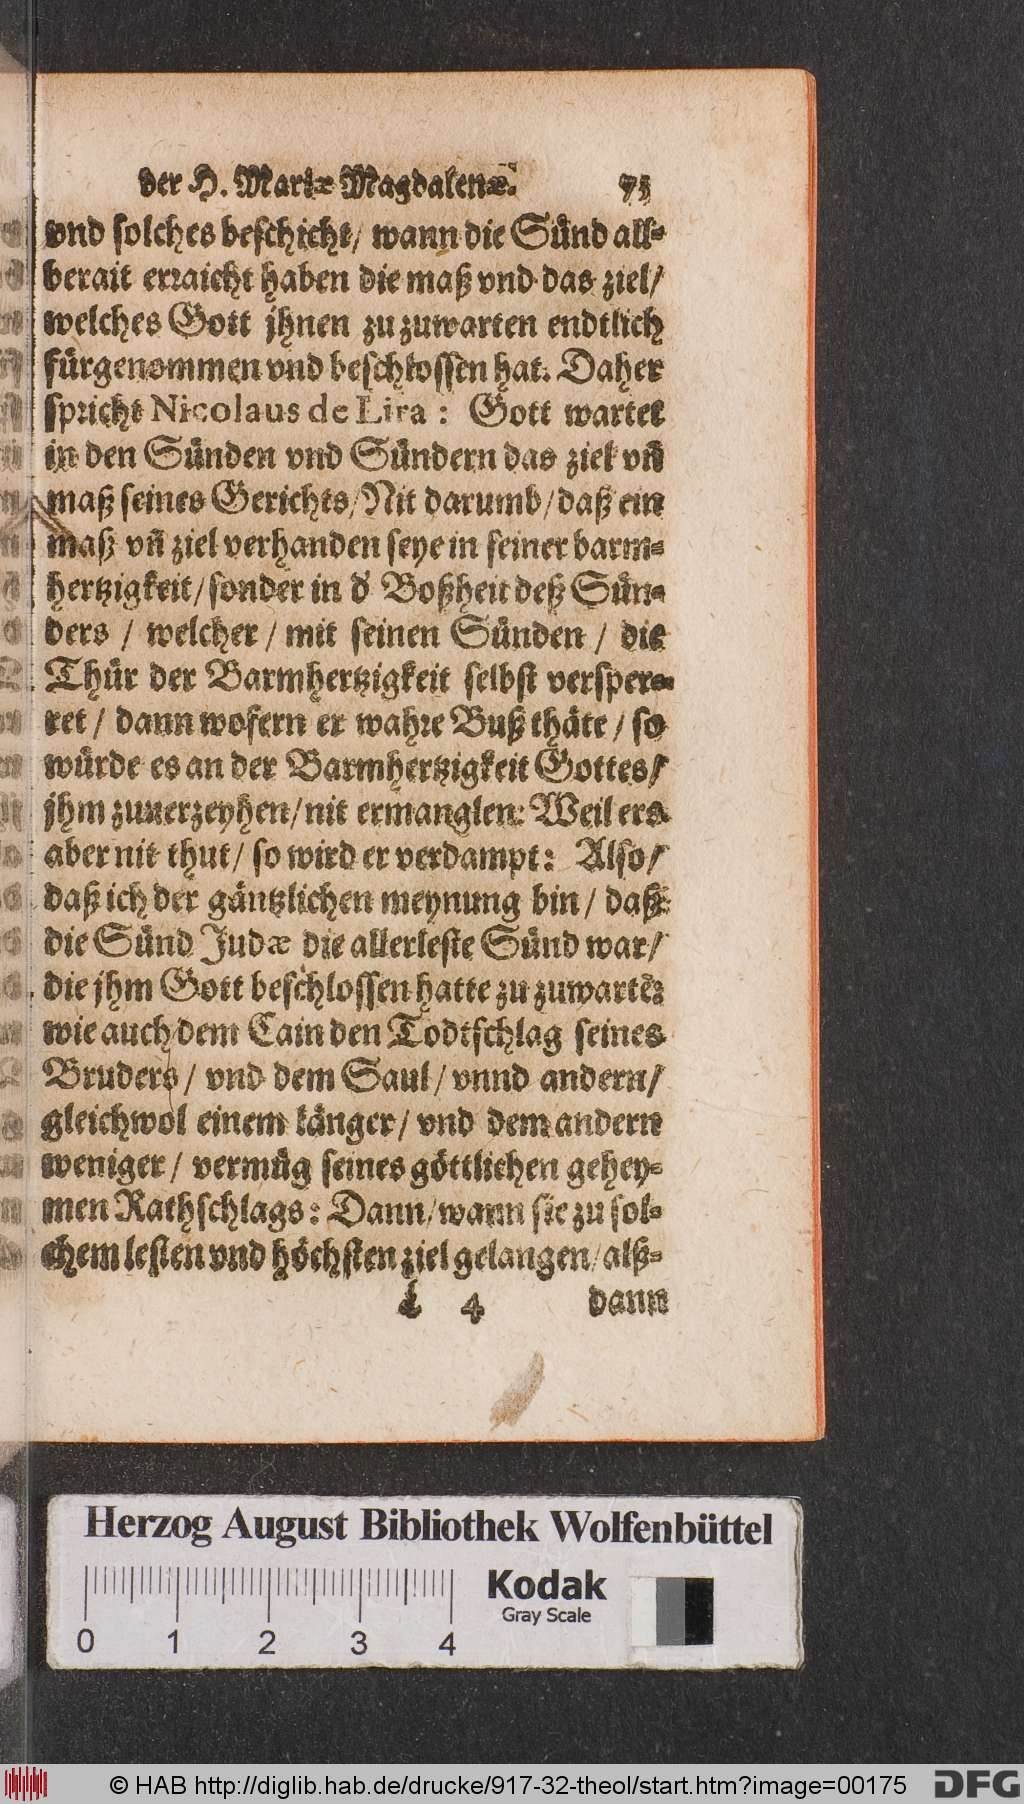 der H. Mariæ Magdalenæ. 75
vnd solches beschicht/ wann die Sünd all-
berait erraicht haben die maß vnd das ziel/
welches Gott jhnen zuzuwarten endtlich
fürgenommen vnd beschlossen hat. Daher
spricht Nicolaus de Lira: Gott wartet
in den Sünden vnd Sündern das ziel vñ
maß seines Gerichts/ Nit darumb/ daß ein
maß vñ ziel verhanden seye in seiner barm-
hertzigkeit/ sonder in d' Boßheit deß Sün-
ders / welcher / mit seinen Sünden / die
Thür der Barmhertzigkeit selbst versper-
ret / dann wofern er wahre Buß thäte / so
würde es an der Barmhertzigkeit Gottes/
jhm zuuerzeyhen/ nit ermanglen: Weil ers
aber nit thut/ so wird er verdampt: Also/
daß ich der gäntzlichen meynung bin / daß
die Sünd Judæ die allerleste Sünd war/
die jhm Gott beschlossen hatte zu zuwartē:
wie auch dem Cain den Todtschlag seines
Bruders/ vnd dem Saul/ vnnd andern/
gleichwol einem länger/ vnd dem andern
weniger/ vermüg seines göttlichen gehey-
men Rathschlags: Dann/ wann sie zu sol-
chem lesten vnd höchsten ziel gelangen/ alß-
4 dann
Herzog August Bibliothek Wolfenbüttel
Kodak
Gray Scale
0 1 2 3 4
© HAB http://diglib.hab.de/drucke/917-32-theol/start.htm?image=00175 DFG